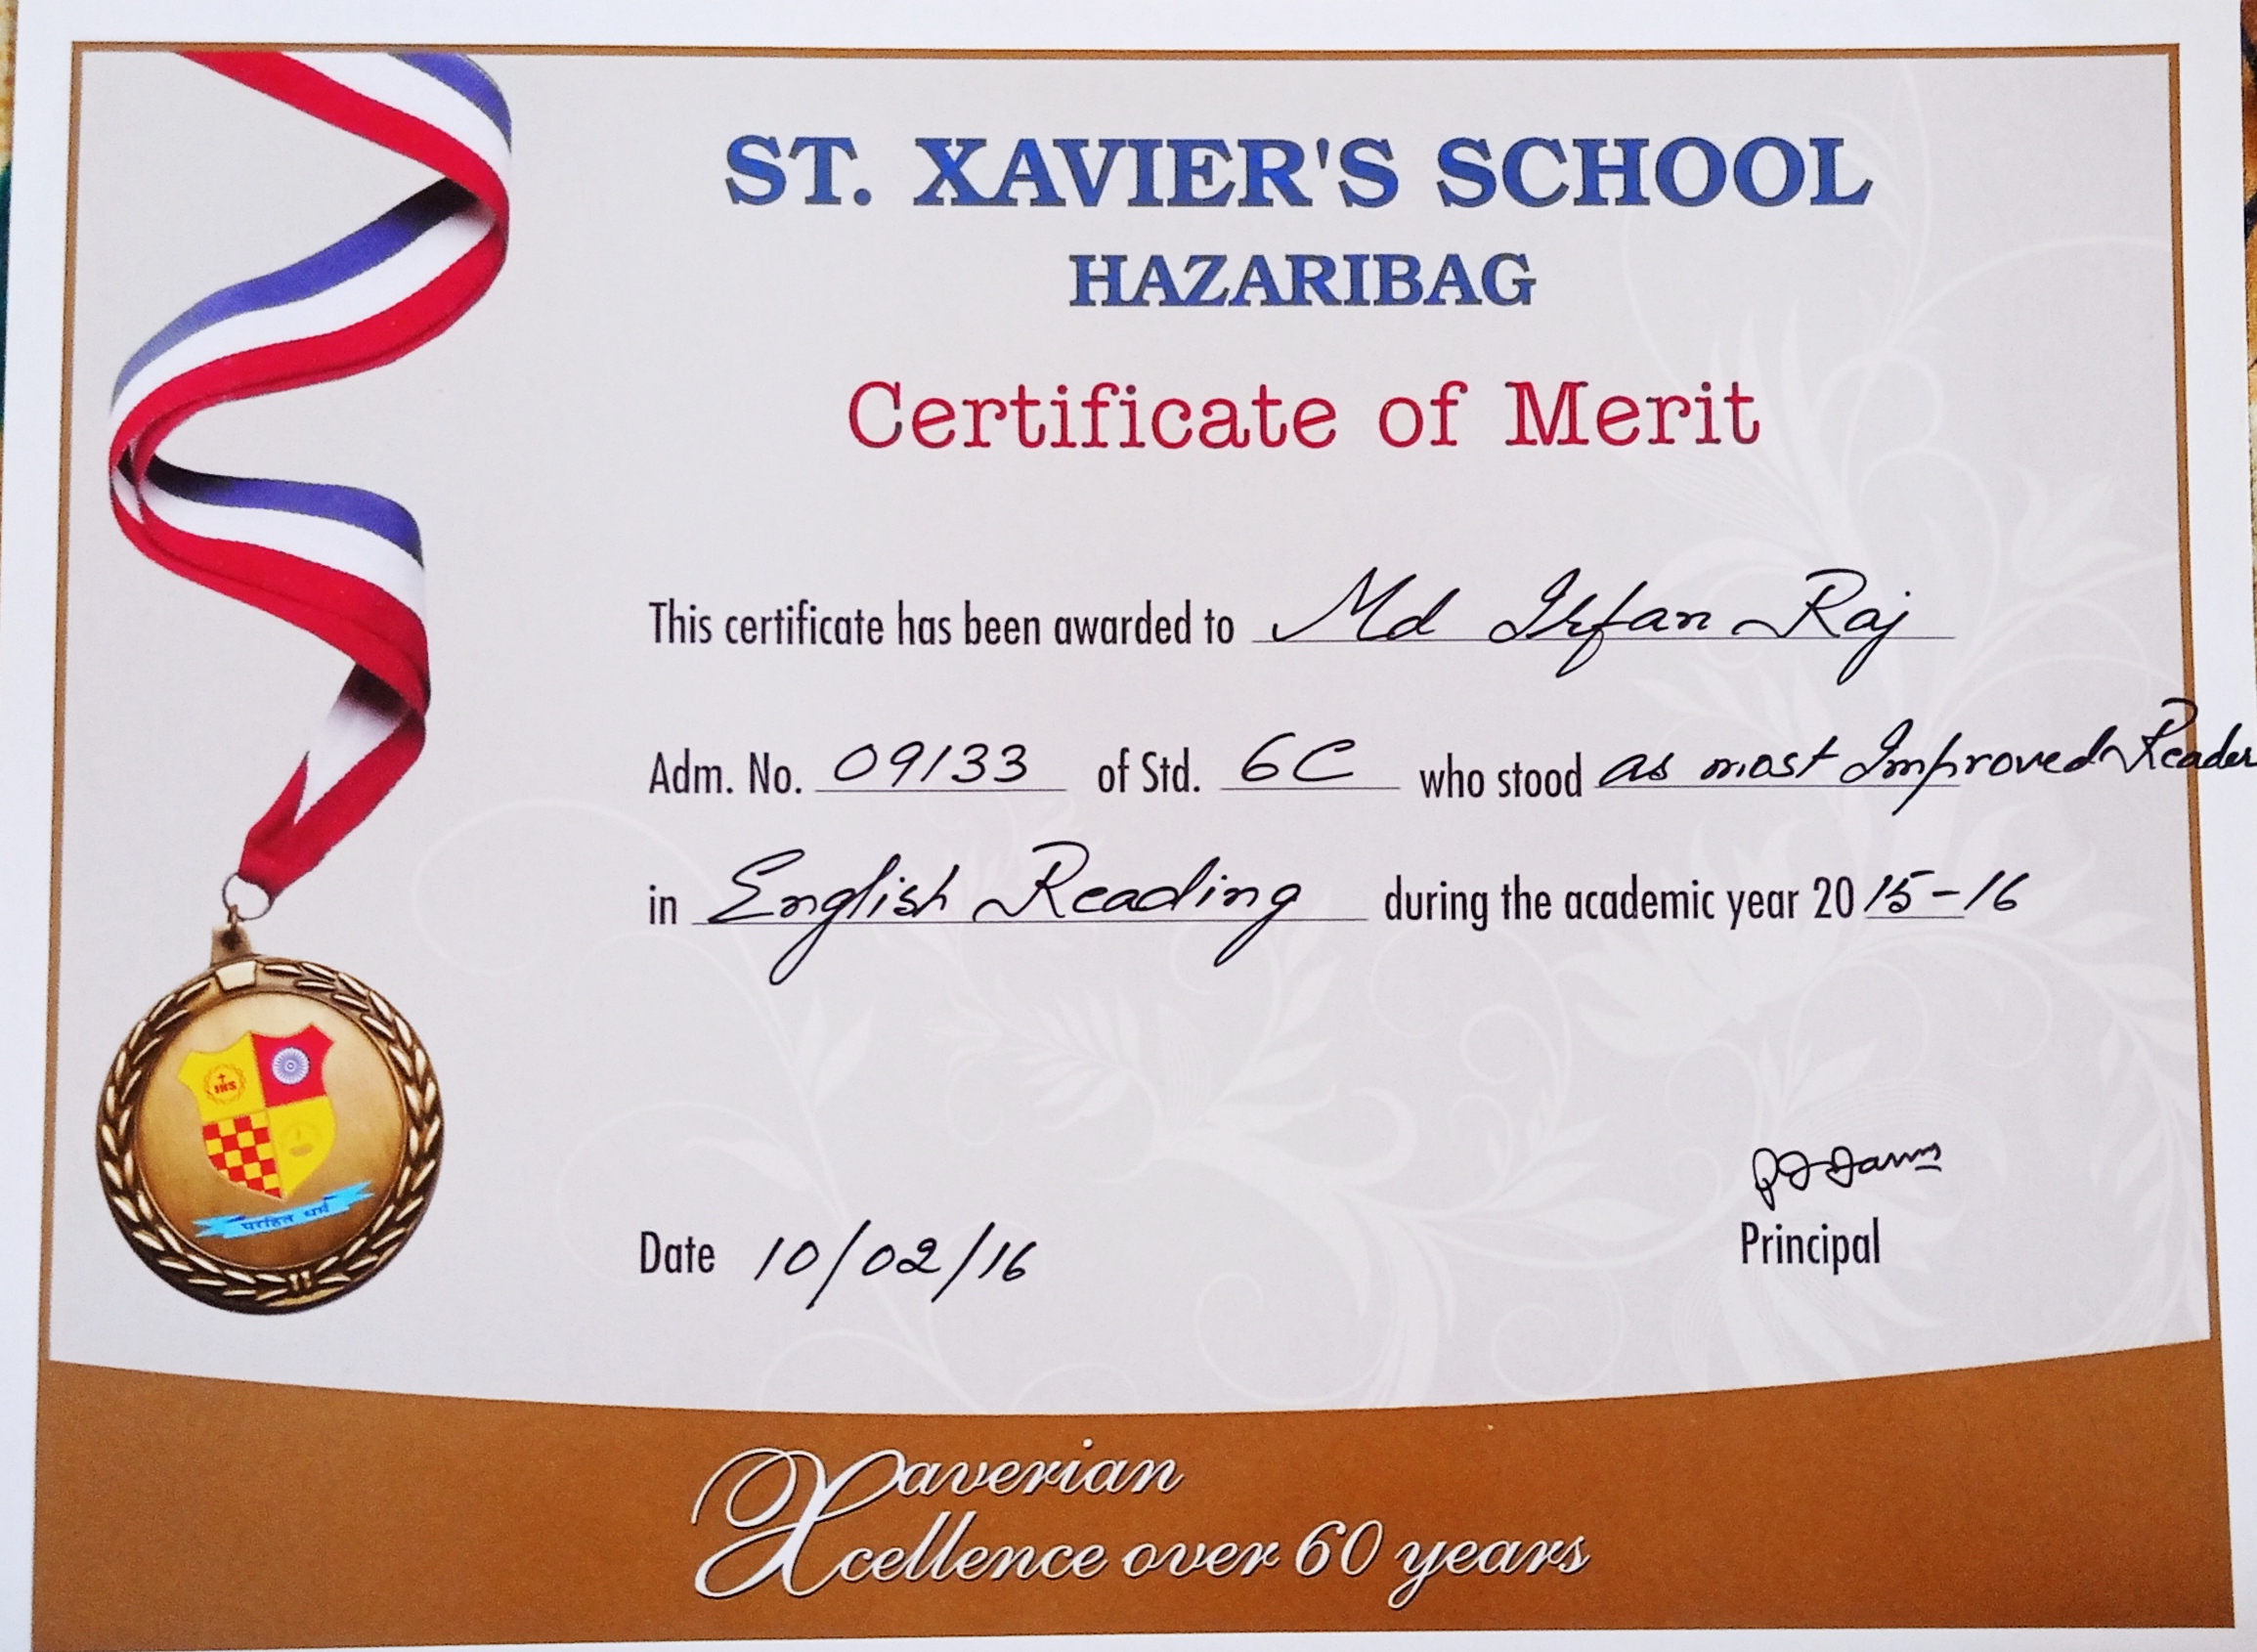 ST. XAVIER'S SCHOOL
HAZARIBAG
Certificate of Merit
This certificate has been awarded to Md Irfan Raj
Adm. No. 09/33 of Std. 6C who stood as most Improved Reader
in English Reading during the academic year 2015-16
IHS
परहित धर्म
Date 10/02/16
Principal
Xaverian
Xcellence over 60 years